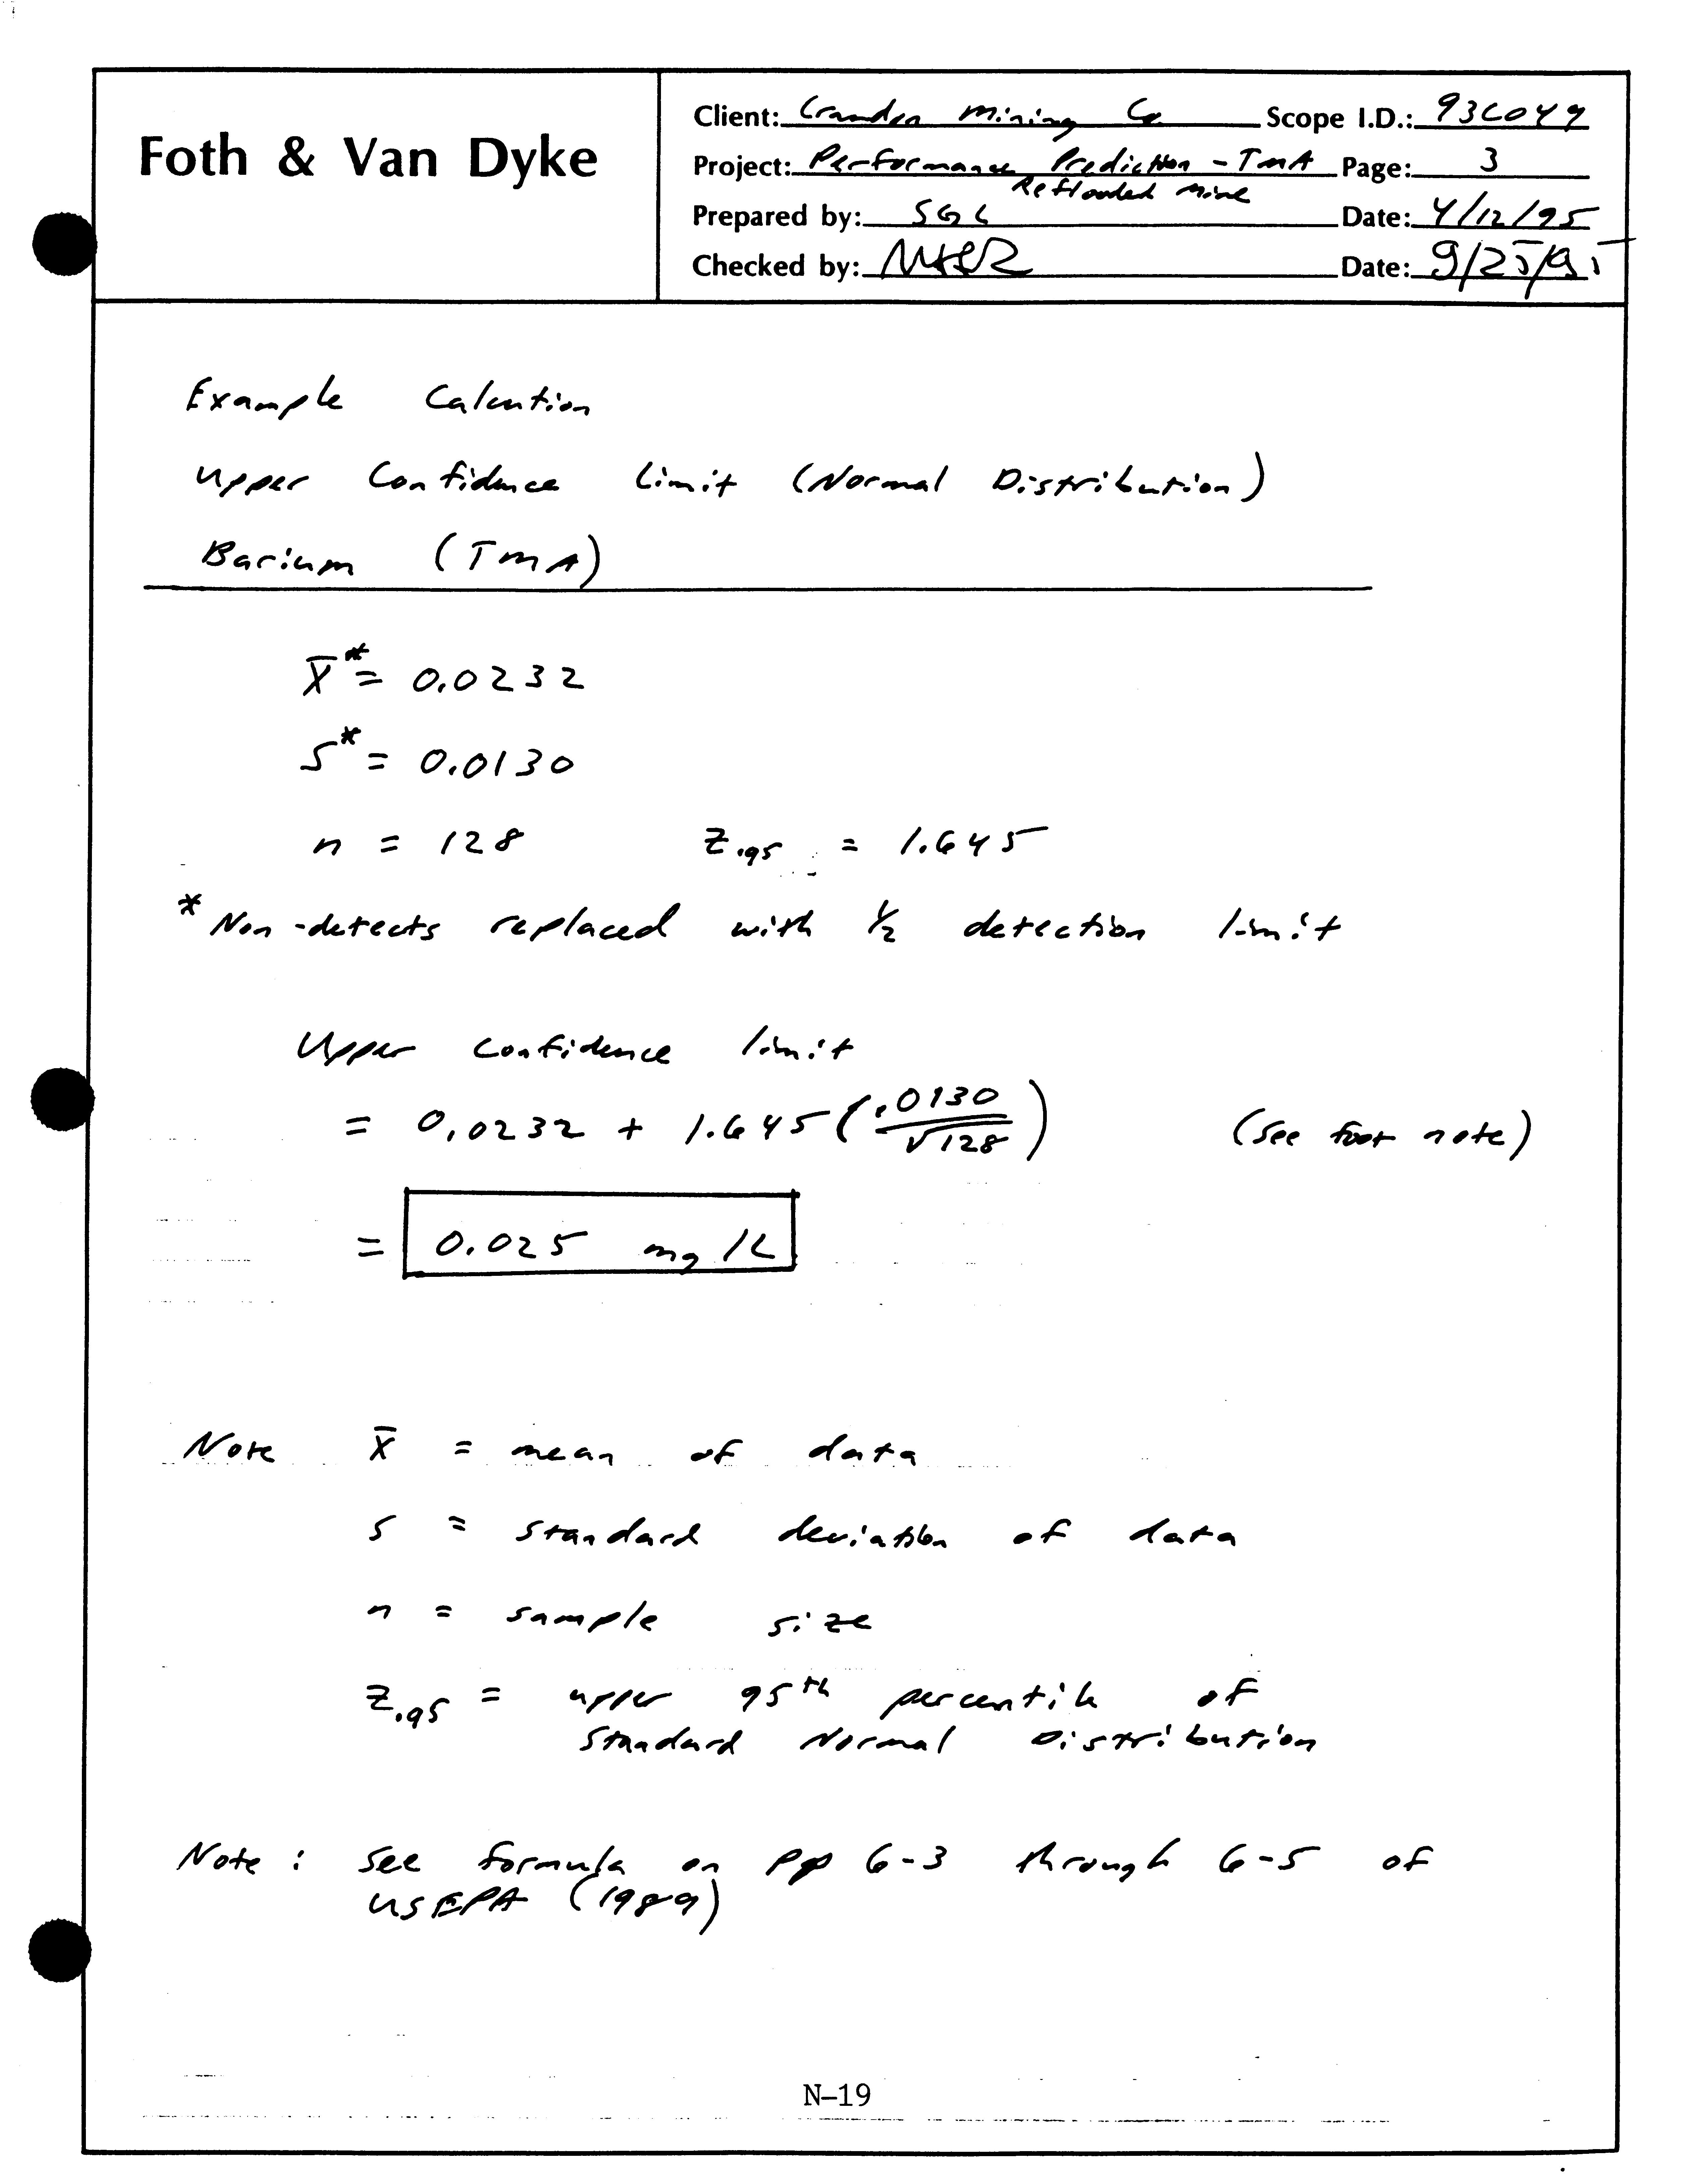 Foth & Van Dyke
Client: Crandon Mining Co Scope I.D.: 93C049
Project: Performance Prediction - TMA Page: 3
Reflooded Mine
Prepared by: SGL Date: 4/12/95
Checked by: Date: 9/25/95
Example Calcution
Upper Confidence Limit (Normal Distribution)
Barium (TMA)
X̄* = 0.0232
S* = 0.0130
n = 128 Z.95 = 1.645
* Non-detects replaced with 1/2 detection limit
Upper confidence limit
= 0.0232 + 1.645 (.0130/√128) (See foot note)
= 0.025 mg/L
Note X̄ = mean of data
S = standard deviation of data
n = sample size
Z.95 = upper 95th percentile of
Standard Normal Distribution
Note: See formula on pp 6-3 through 6-5 of
USEPA (1989)
N-19